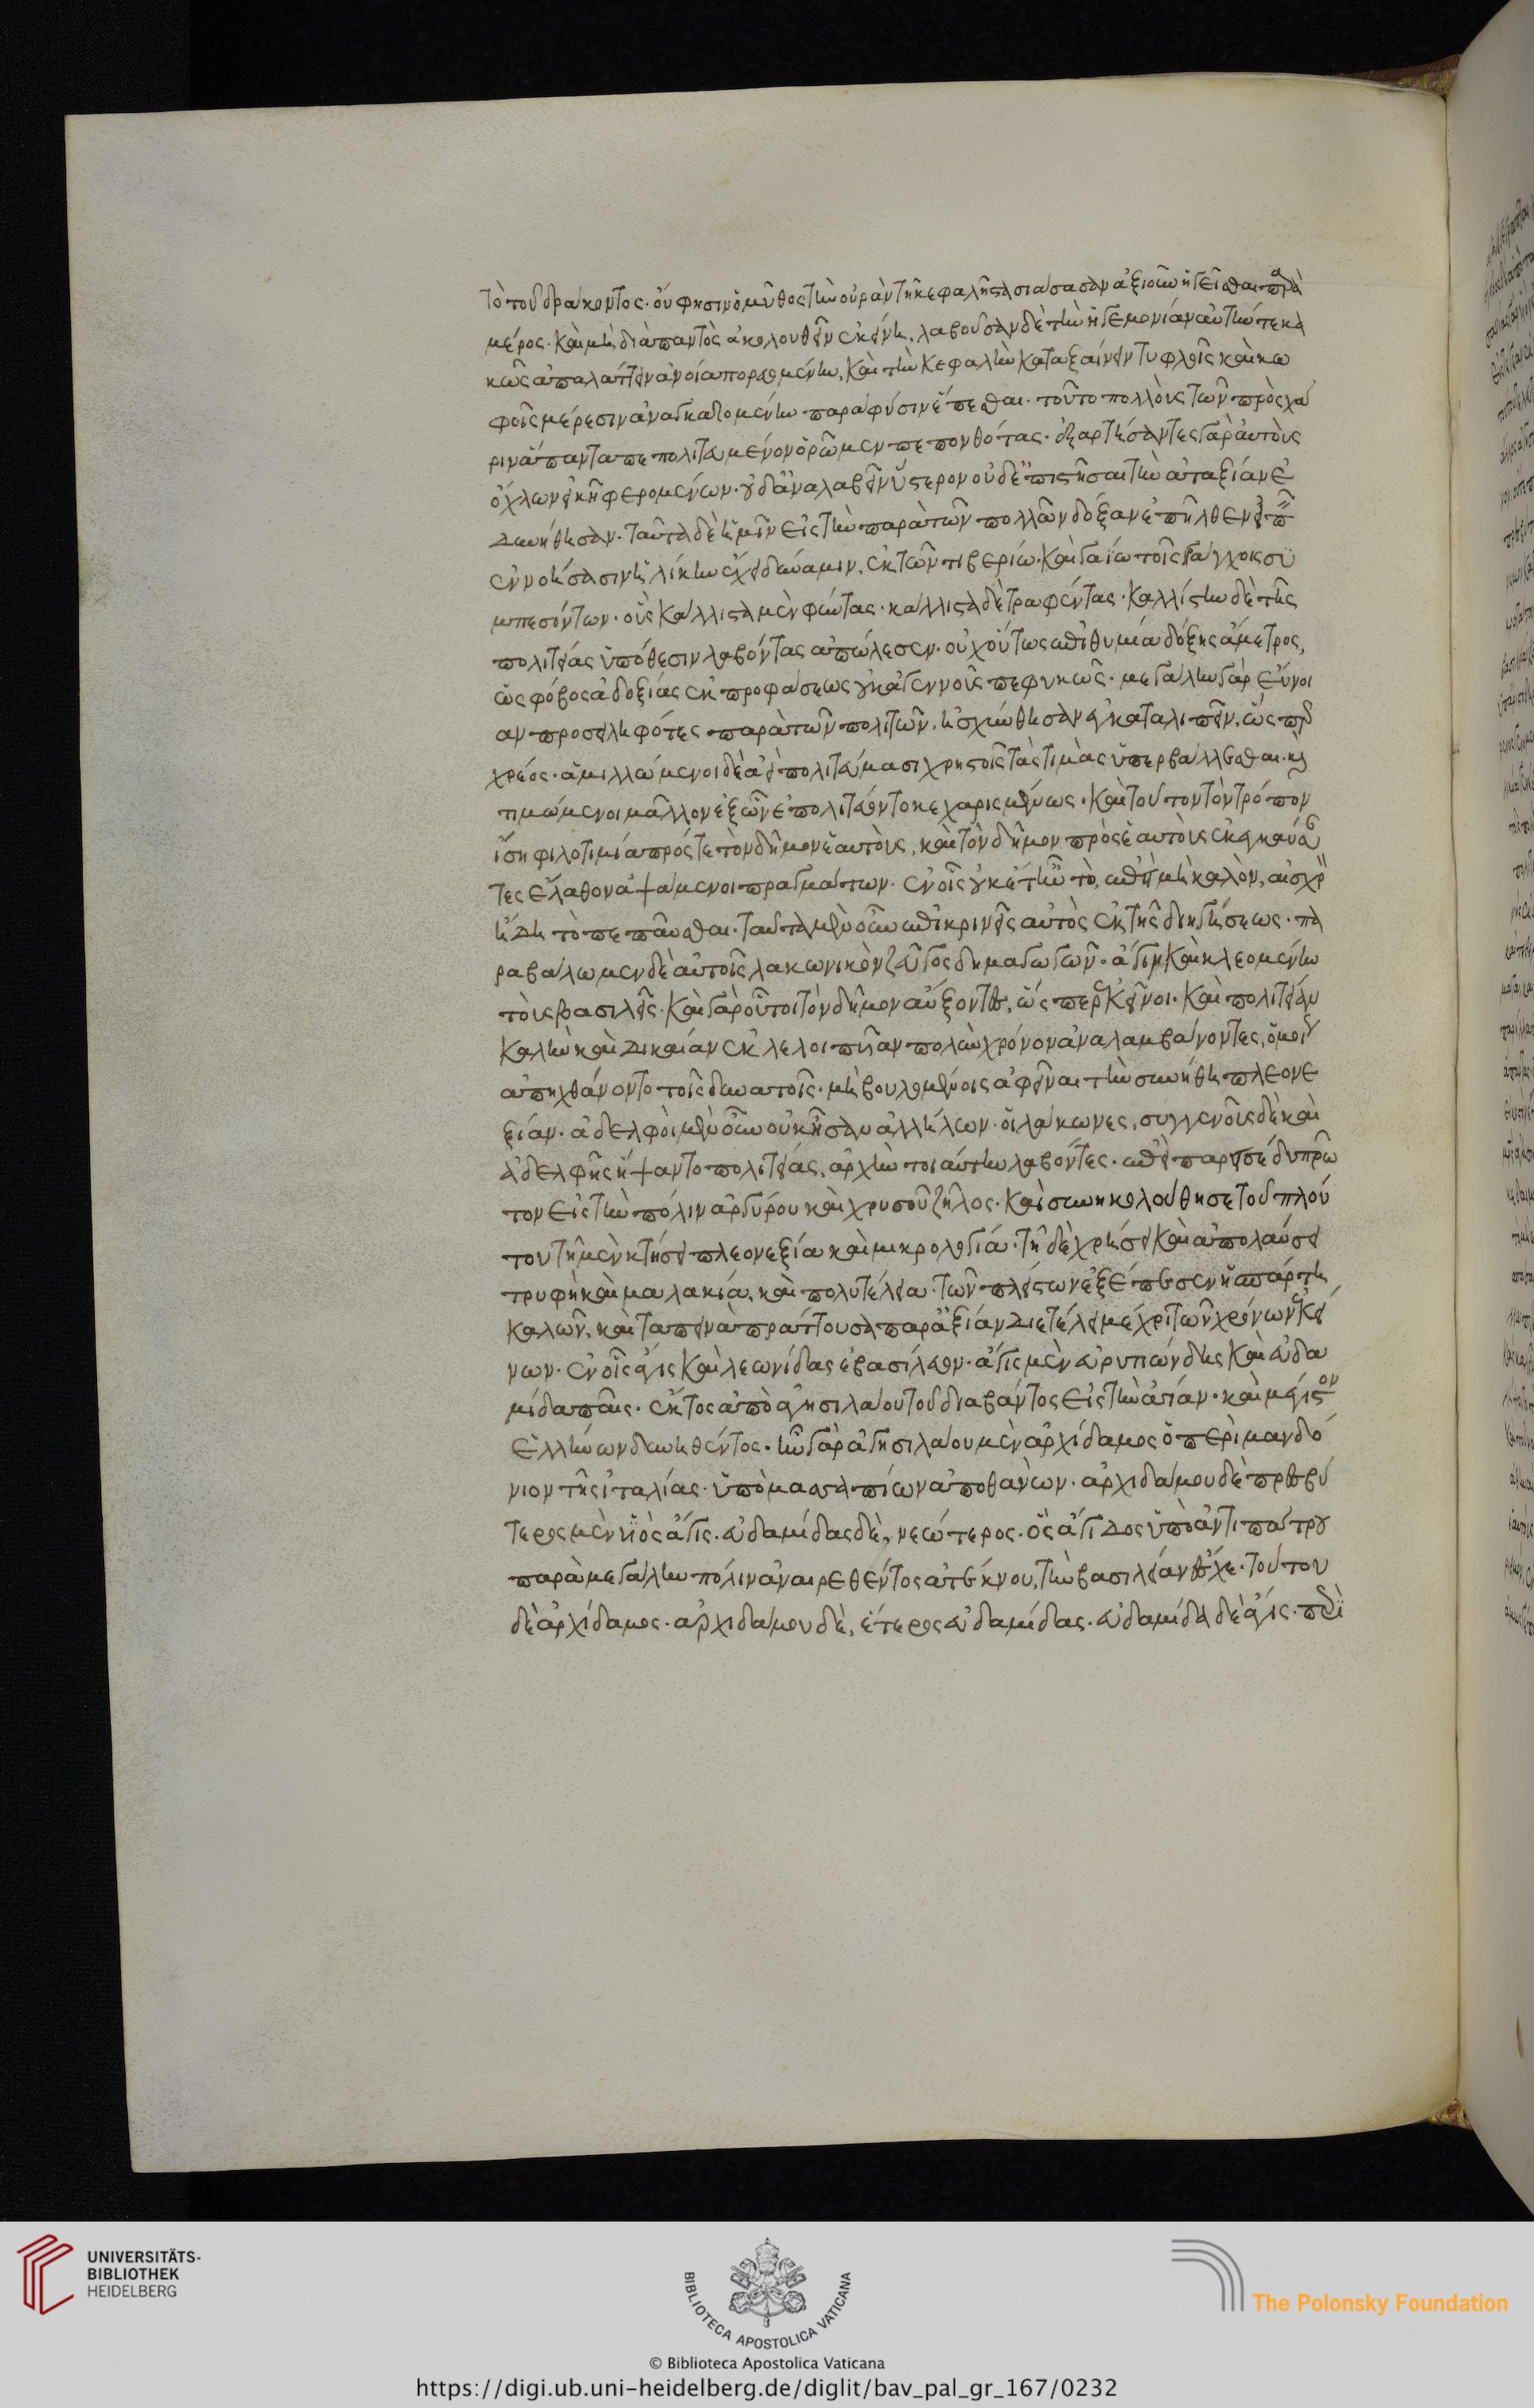 τὸ τοῦ δράκοντος. οὗ φησὶν ὁ μῦθος τὴν οὐρὰν τῇ κεφαλῇ στασιάσασαν ἀξιοῦν ἡγεῖσθαι παρὰ
μέρος. καὶ μὴ διὰ παντὸς ἀκολουθεῖν ἐκείνῃ. λαβοῦσαν δὲ τὴν ἡγεμονίαν αὐτήν τε κα
κῶς ἀπαλάττειν ἀνοίᾳ πορευομένην, καὶ τὴν κεφαλὴν καταξαίνειν τυφλοῖς καὶ κω
φοῖς μέρεσιν ἀναγκαζομένην παρὰ φύσιν ἕπεσθαι. τοῦτο πολλοὺς τῶν πρὸς χά
ριν ἅπαντα πεπολιτευμένον ὁρῶμεν πεπονθότας. ἐξαρτήσαντες γὰρ αὑτοὺς
ὄχλων εἰκῇ φερομένων. οὐδ' ἀναλαβεῖν ὕστερον οὐδ' ἐπιστῆσαι τὴν ἀταξίαν ἐ
δυνήθησαν. ταῦτα δὲ ἡμῖν εἰς τὴν παρὰ τῶν πολλῶν δόξαν ἐπῆλθεν εἰπεῖν
ἐννοήσασιν ἡλίκην ἔχει δύναμιν, ἐκ τῶν τιβερίῳ. καὶ γαίῳ τοῖς γάγχοις συ
μπεσόντων. οὓς κάλλιστα μὲν φύντας. κάλλιστα δὲ τραφέντας. καλλίστην δὲ τῆς
πολιτείας ὑπόθεσιν λαβόντας ἀπώλεσεν. οὐχ οὕτως ἐπιθυμία δόξης ἄμετρος,
ὡς φόβος ἀδοξίας ἐκ προφάσεως οὐκ ἀγεννοῦς πεφυκώς. μεγάλην γὰρ εὔνοι
αν προσειληφότες παρὰ τῶν πολιτῶν, ᾐσχύνθησαν ἐγκαταλιπεῖν, ὥσπερ
χρέος. ἁμιλλώμενοι δὲ ἀεὶ πολιτεύμασι χρηστοῖς τὰς τιμὰς ὑπερβάλλεσθαι. καὶ
τιμώμενοι μᾶλλον ἐξ ὧν ἐπολιτεύοντο κεχαρισμένως. καὶ τοῦτον τὸν τρόπον
ἴσῃ φιλοτιμίᾳ πρός τε τὸν δῆμον ἑαυτοὺς, καὶ τὸν δῆμον πρὸς ἑαυτοὺς ἐκκαύσαν
τες ἔλαθον ἁψάμενοι πραγμάτων. ἐν οἷς οὐκέτ' ἦν τὸ, ἐπεὶ μὴ καλὸν, αἰσχρὸν
ἤδη τὸ πεπαῦσθαι. ταῦτα μὲν οὖν ἐπικρινεῖς αὐτὸς ἐκ τῆς διηγήσεως. πα
ραβάλωμεν δὲ αὐτοῖς λακωνικὸν ζεῦγος δημαγωγῶν. ἄγιν καὶ κλεομένην
τοὺς βασιλεῖς. καὶ γὰρ οὗτοι τὸν δῆμον αὔξοντες, ὥσπερ ἐκεῖνοι. καὶ πολιτείαν
καλὴν καὶ δικαίαν ἐκλελοιπυῖαν πολὺν χρόνον ἀναλαμβάνοντες, ὁμοίως
ἀπηχθάνοντο τοῖς δυνατοῖς. μὴ βουλομένοις ἀφεῖναι τὴν συνήθη πλεονε
ξίαν. ἀδελφοὶ μὲν οὖν οὐκ ἦσαν ἀλλήλων. οἱ λάκωνες, συγγενοῦς δὲ καὶ
ἀδελφῆς ἥψαντο πολιτείας, ἀρχὴν τοιαύτην λαβόντες. ἐπεὶ παρεισέδυ πρῶ
τον εἰς τὴν πόλιν ἀργύρου καὶ χρυσοῦ ζῆλος. καὶ συνηκολούθησε τοῦ πλού
του τῇ μὲν κτήσει πλεονεξία καὶ μικρολογία. τῇ δὲ χρήσει καὶ ἀπολαύσει
τρυφὴ καὶ μαλακία. καὶ πολυτέλεια. τῶν πλείστων ἐξέπεσεν ἡ σπάρτη
καλῶν. καὶ ταπεινὰ πράττουσα παρ' ἀξίαν διετέλει μέχρι τῶν χρόνων ἐκεί
νων. ἐν οἷς ἄγις καὶ λεωνίδας ἐβασίλευον. ἄγις μὲν εὐρυπώνδης καὶ εὐδα
μίδα παῖς. ἕκτος ἀπὸ ἀγησιλάου τοῦ διαβάντος εἰς τὴν ἀσίαν. καὶ μέγιστον
ἑλλήνων δυνηθέντος. ἦν γὰρ ἀγησιλάου μὲν ἀρχίδαμος ὁ περὶ μανδό
νιον τῆς ἰταλίας. ὑπὸ μασσαπίων ἀποθανών. ἀρχιδάμου δὲ πρεσβύ
τερος μὲν υἱὸς ἄγις. εὐδαμίδας δὲ, νεώτερος. ὃς ἄγιδος ὑπὸ ἀντιπάτρου
παρὰ μεγάλην πόλιν ἀναιρεθέντος ἀτέκνου, τὴν βασιλείαν ἔσχε. τούτου
δὲ ἀρχίδαμος. ἀρχιδάμου δὲ, ἕτερος εὐδαμίδας. εὐδαμίδα δὲ ἄγις. περὶ
UNIVERSITÄTS-
BIBLIOTHEK
HEIDELBERG
BIBLIOTECA APOSTOLICA VATICANA
The Polonsky Foundation
© Biblioteca Apostolica Vaticana
https://digi.ub.uni-heidelberg.de/diglit/bav_pal_gr_167/0232